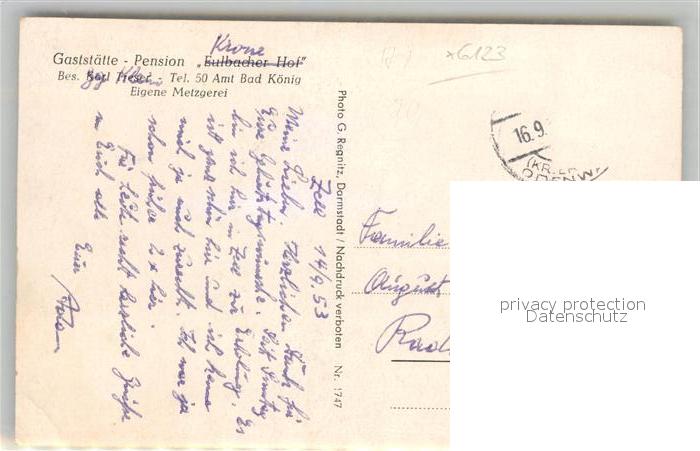 Krone
Gaststätte - Pension „Eulbacher Hof"
Bes. Karl Treser - Tel. 50 Amt Bad König
Eigene Metzgerei
x6123
16.9.
(KR. ER
ODENW
Photo G. Regnitz, Darmstadt / Nachdruck verboten Nr. 1747
Zell 14/9 53
Meine Lieben. Herzlichen Dank für
Eure Glückwünsche. Seit
bin ich hier in Zell zur Erholung. Es
ist ganz schön hier und ich kenne
mich ja auch zurecht. Ich war ja
schon früher 2 x hier.
Für heute recht herzliche Grüße
an Euch alle
Euer
Familie
August
Rad
privacy protection
Datenschutz